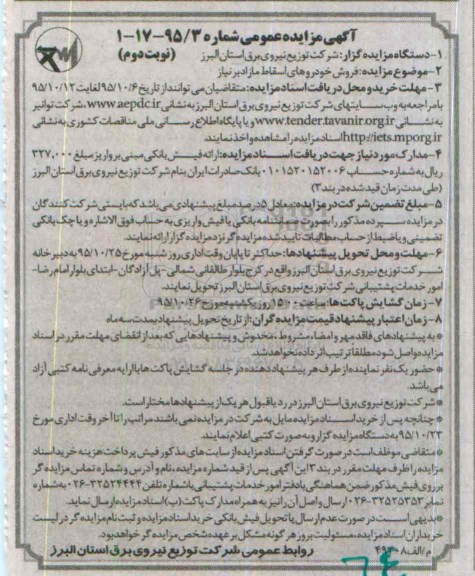 آگهی مزایده عمومی شماره ۹۵/۳-۱۷-۱
(نوبت دوم)
۱-دستگاه مزایده گزار: شرکت توزیع نیروی برق استان البرز
۲-موضوع مزایده: فروش خودروهای اسقاط مازاد بر نیاز
۳-مهلت خرید و محل دریافت اسناد مزایده: متقاضیان می توانند از تاریخ ۹۵/۱۰/۶ لغایت ۹۵/۱۰/۱۲
با مراجعه به وب سایتهای شرکت توزیع نیروی برق استان البرز به نشانی www.aepdc.ir، شرکت توانیر
به نشانی www.tender.tavanir.org.ir و یا پایگاه اطلاع رسانی ملی مناقصات کشوری به نشانی
http://iets.mporg.ir اسناد مزایده را مشاهده و اخذ نمایند.
۴-مدارک مورد نیاز جهت دریافت اسناد مزایده: ارائه فیش بانکی مبنی بر واریز مبلغ ۳۲۷,۰۰۰
ریال به شماره حساب ۰۱۰۱۵۲۰۱۵۲۰۰۶ بانک صادرات ایران بنام شرکت توزیع نیروی برق استان البرز
(طی مدت زمان قید شده در بند۳)
۵-مبلغ تضمین شرکت در مزایده: معادل ۵ درصد مبلغ پیشنهادی می باشد که بایستی شرکت کنندگان
در مزایده سپرده مذکور را بصورت ضمانتنامه بانکی یا فیش واریزی به حساب فوق الاشاره و یا چک بانکی
تضمینی و یا ضبط از حساب مطالبات تایید شده مزایده گر نزد مزایده گزار ارائه نمایند.
۶-مهلت و محل تحویل پیشنهادها: حداکثر تا پایان وقت اداری روز شنبه مورخ ۹۵/۱۰/۲۵ به دبیرخانه
شرکت توزیع نیروی برق استان البرز واقع در کرج بلوار طالقانی شمالی-پل آزادگان-ابتدای بلوار امام رضا-
امور خدمات پشتیبانی شرکت توزیع نیروی برق استان البرز تحویل نمایند.
۷-زمان گشایش پاکت ها: ساعت ۱۵:۰۰ روز یکشنبه مورخ ۹۵/۱۰/۲۶
۸-زمان اعتبار پیشنهاد قیمت مزایده گران: از تاریخ تحویل پیشنهاد بمدت سه ماه
* به پیشنهادهای فاقد مهر و امضاء، مشروط، مخدوش و پیشنهادهایی که بعد از انقضای مهلت مقرر در اسناد
مزایده واصل شود مطلقا ترتیب اثر داده نخواهد شد.
* حضور یک نفر نماینده از طرف هر پیشنهاد دهنده در جلسه گشایش پاکت ها با ارایه معرفی نامه کتبی آزاد
می باشد.
* شرکت توزیع نیروی برق استان البرز در رد یا قبول هر یک از پیشنهادها مختار است.
* چنانچه پس از خرید اسناد مزایده مایل به شرکت در مزایده نمی باشند مراتب را تا آخر وقت اداری مورخ
۹۵/۱۰/۲۳ به دستگاه مزایده گزار و به صورت کتبی اعلام نمایند.
* متقاضی موظف است در صورت گرفتن اسناد مزایده از سایت های مذکور فیش پرداخت هزینه خرید اسناد
مزایده را ظرف مهلت مقرر در بند ۳ این آگهی پس از قید شماره مزایده، نام و آدرس و شماره تماس مزایده گر
بر روی فیش مذکور ضمن هماهنگی با دفتر امور خدمات پشتیبانی با شماره تلفن ۳۲۵۲۴۴۴۴-۰۲۶ به شماره
نمابر ۳۲۵۲۵۳۵۲-۰۲۶ ارسال و اصل آن را نیز به همراه مدارک پاکت (ب) اسناد مزایده ارسال نماید.
* بدیهی است در صورت عدم ارسال یا تحویل فیش بانکی خرید اسناد مزایده و ثبت نام مزایده گر در لیست
خریداران اسناد مزایده، مسئولیت بروز هر گونه مشکل بر عهده شخص مزایده گر خواهد بود.
روابط عمومی شرکت توزیع نیروی برق استان البرز